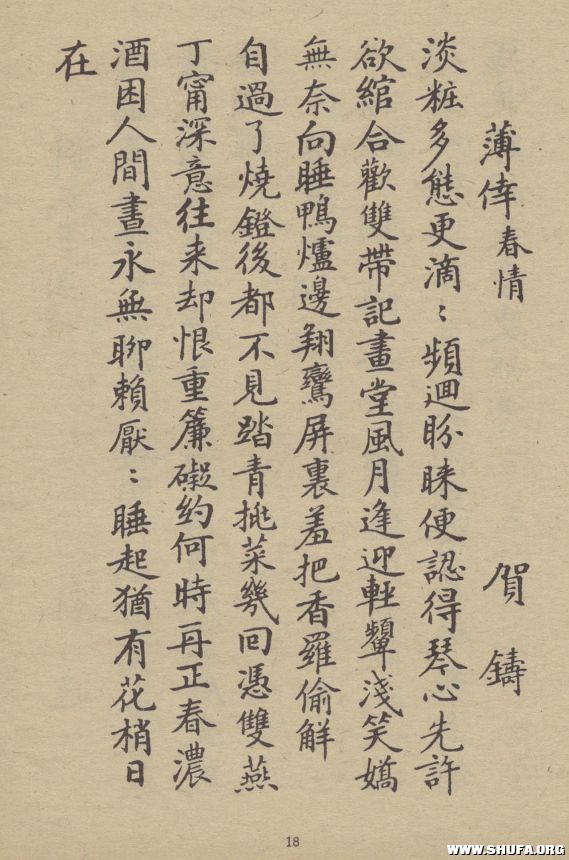 薄倖春情 賀鑄
淡粧多態更滴〻頻迴盼睐便認得琴心先許
欲綰合歡雙帶記畫堂風月逢迎輕顰淺笑嬌
無奈向睡鴨爐邊翔鸞屏裏羞把香羅偷解
自過了燒鐙後都不見踏青挑菜幾回憑雙燕
丁甯深意往来却恨重簾礙約何時再正春濃
酒困人間晝永無聊賴厭〻睡起猶有花梢日
在
18
WWW.SHUFA.ORG